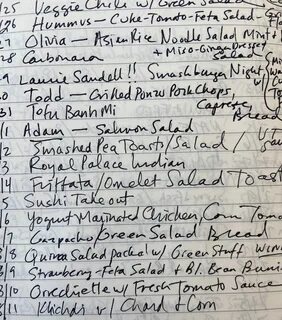 /25 Veggie Chili w/ Green Salad
/26 Hummus - Cuke-Tomato-Feta Salad
/27 Olivia - Asian Rice Noodle Salad Mint
28 Carbonara + Miso-Ginger Dressed Salad
29 Laurie Sandell!! Smashburger Night w/
30 Todd - Grilled Ponzu Pork Chops, Caprese
31 Tofu Banh Mi Bread
/1 Adam - Salmon Salad
/2 Smashed Pea Toasts/Salad/
/3 Royal Palace Indian
/4 Frittata/Omelet Salad Toast
/5 Sushi Takeout
/6 Yogurt Marinated Chicken, Corn Toma
/7 Gazpacho/Green Salad Bread
8/8 Quinoa Salad packed w/ Green Stuff
8/9 Strawberry-Feta Salad + Bl. Bean
8/10 Orecchiette w/ Fresh Tomato Sauce
8/11 w/ Chard + Corn